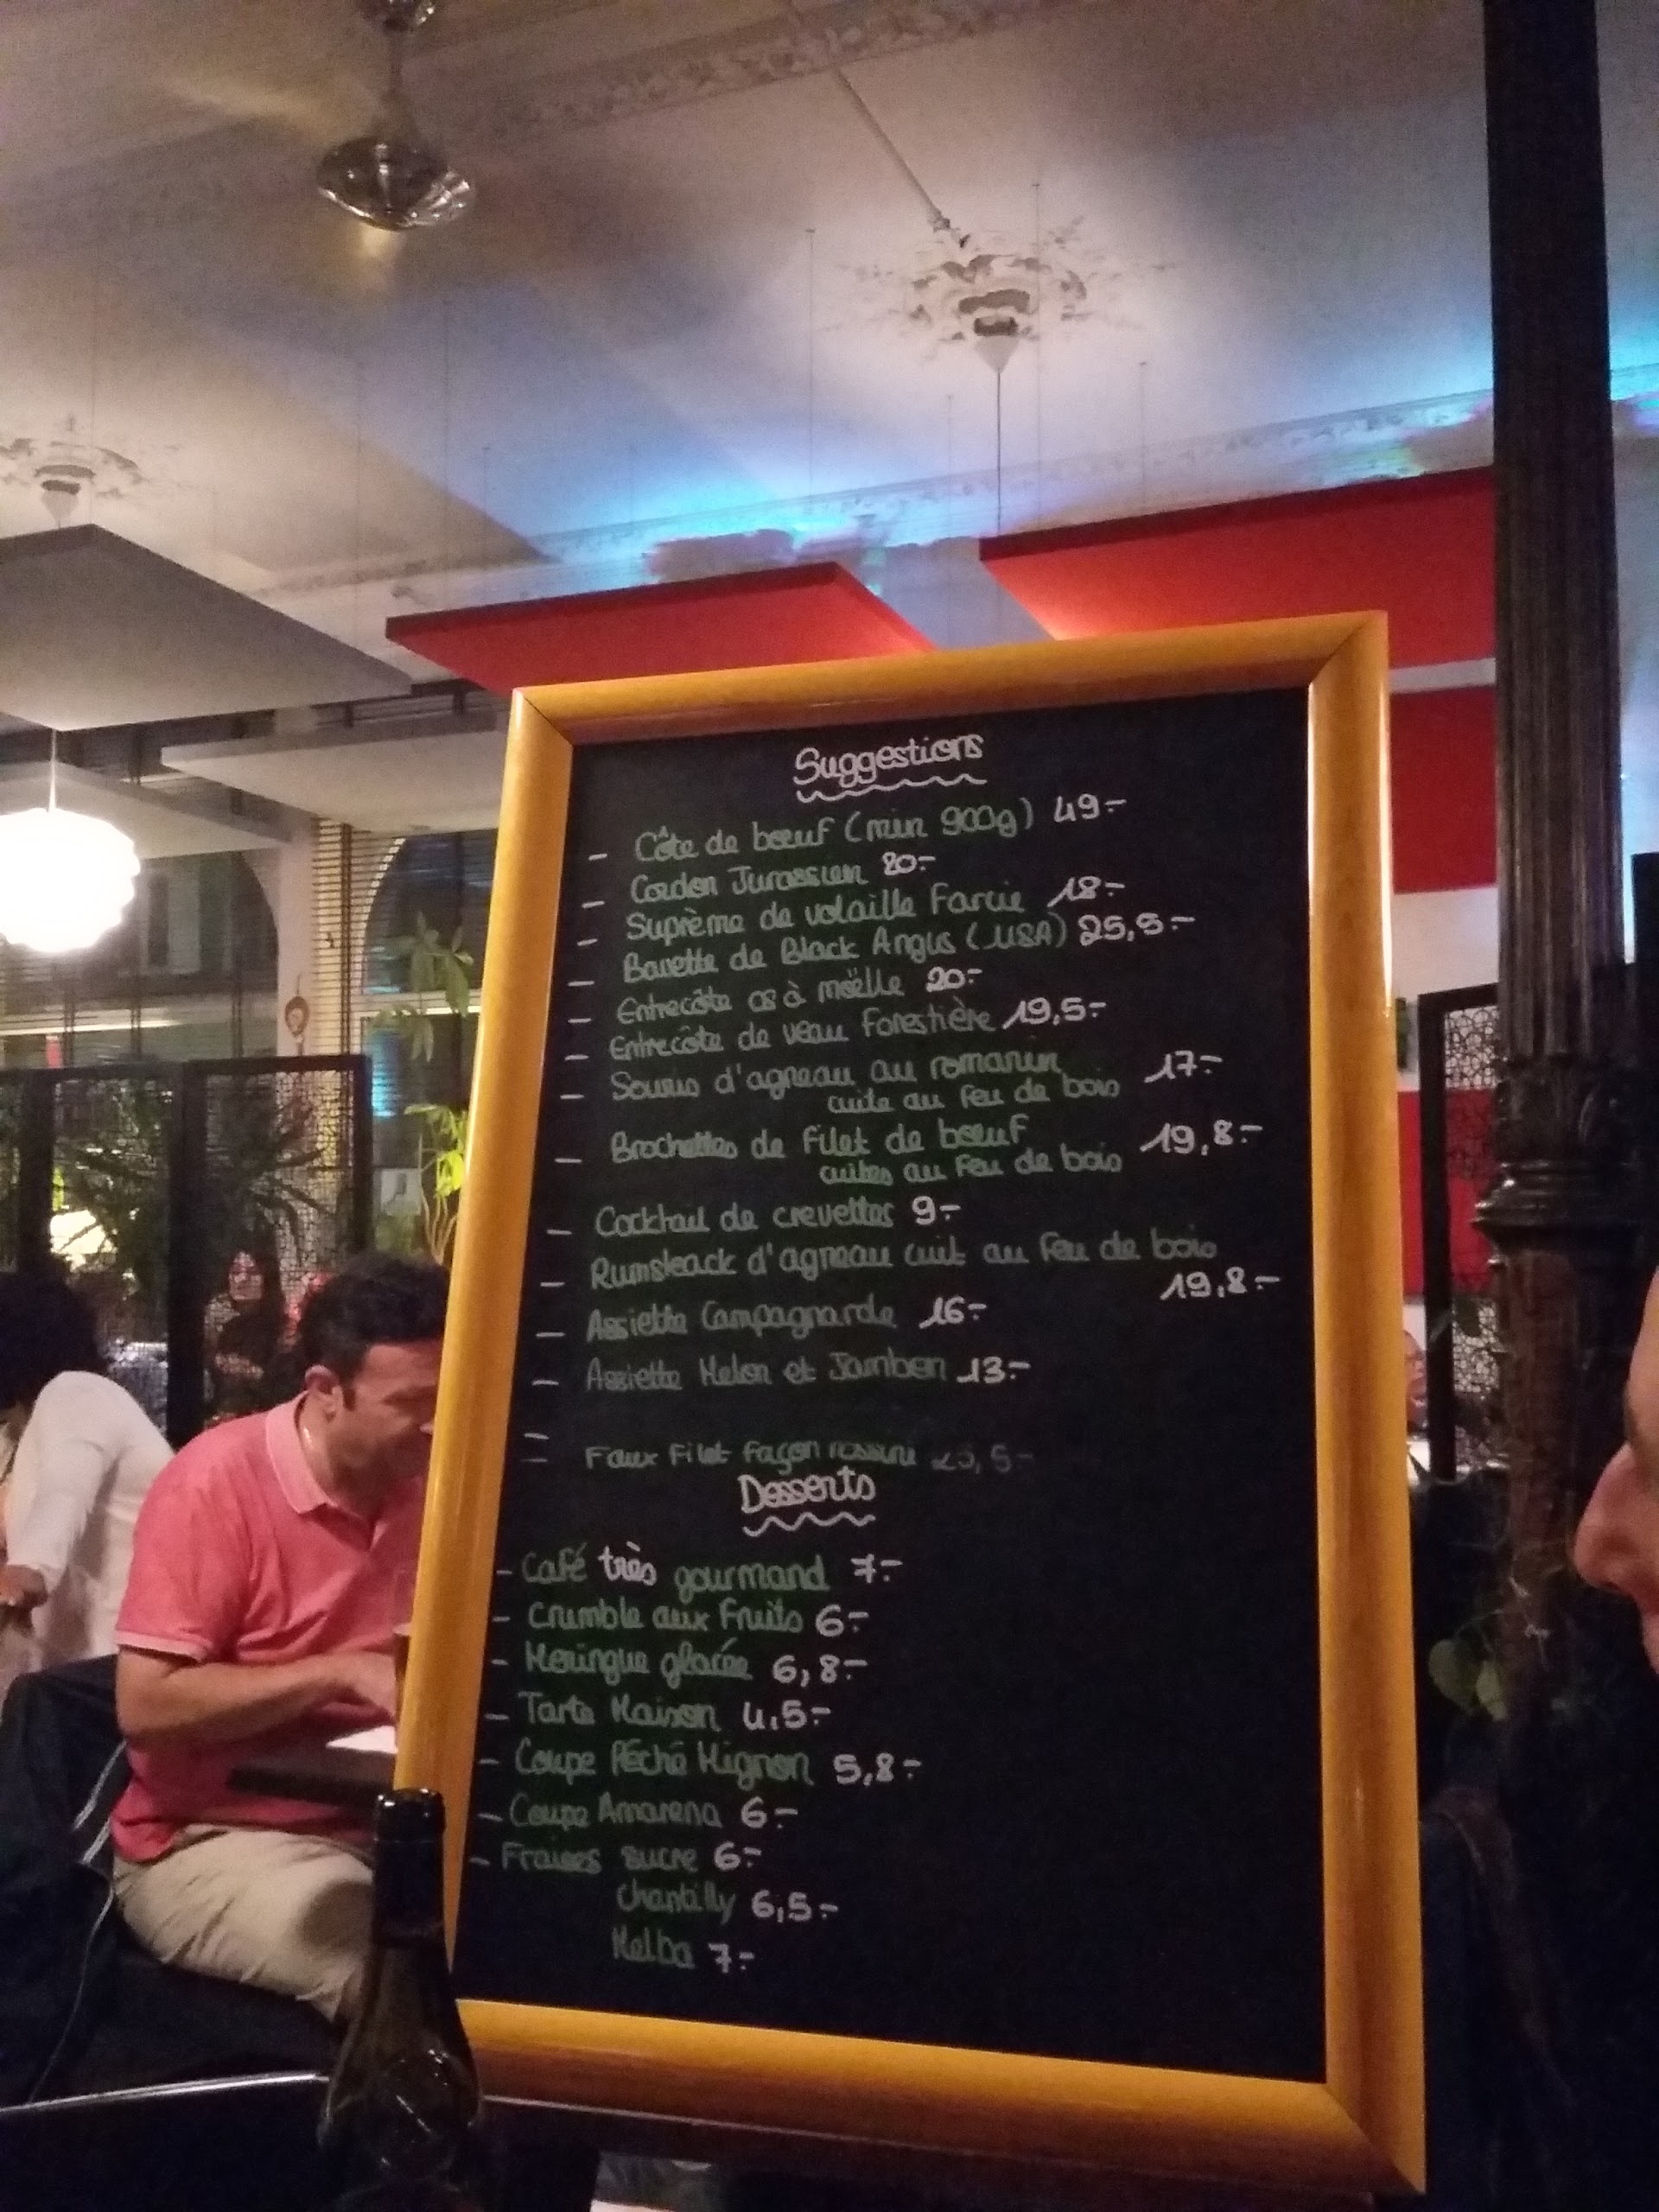 Suggestions
- Côte de bœuf (min 900g) 49.-
- Cordon Jurassien 20.-
- Suprème de volaille Farcie 18.-
- Bavette de Black Angus (USA) 25,5.-
- Entrecôte os à mœlle 20.-
- Entrecôte de veau Forestière 19,5.-
- Souris d'agneau au romarin 17.-
cuite au feu de bois
- Brochettes de Filet de bœuf 19,8.-
cuites au feu de bois
- Cocktail de crevettes 9.-
- Rumsteack d'agneau cuit au feu de bois
19,8.-
- Assiette Campagnarde 16.-
- Assiette Melon et Jambon 13.-
-
- Faux Filet façon rossini
Desserts
- Café très gourmand 7.-
- Crumble aux Fruits 6.-
- Meringue glacée 6,8.-
- Tarte Maison 4,5.-
- Coupe Péché Mignon 5,8.-
- Coupe Amarena 6.-
- Fraises sucre 6.-
Chantilly 6,5.-
Melba 7.-